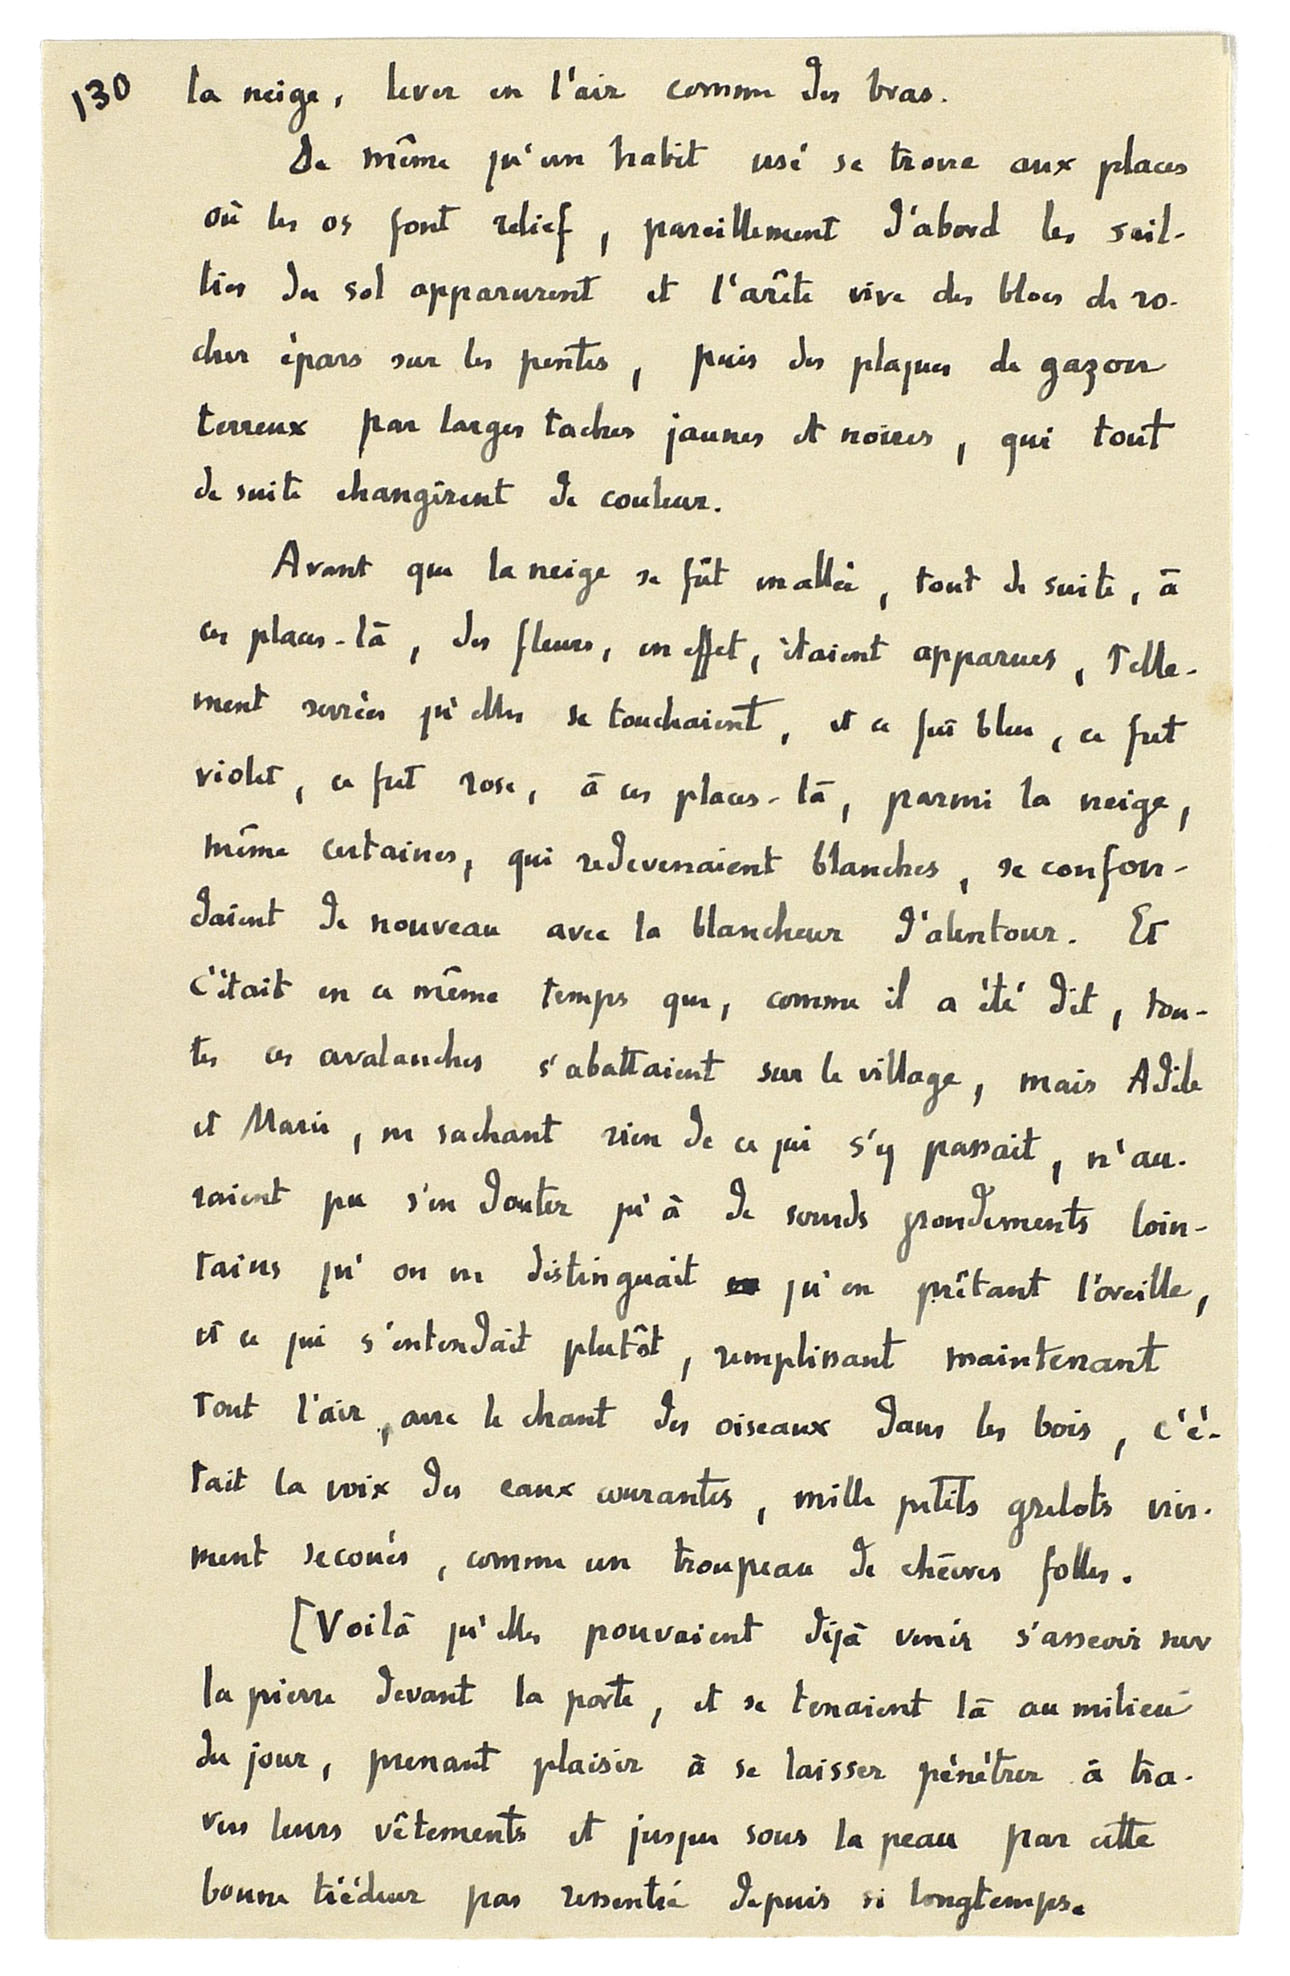 130
la neige, lever en l'air comme des bras.
De même qu'un habit usé se troue aux places
où les os font relief, pareillement d'abord les sail-
lies du sol apparurent et l'arête vive des blocs de ro-
cher épars sur les pentes, puis des plaques de gazon
terreux par larges taches jaunes et noires, qui tout
de suite changèrent de couleur.
Avant que la neige se fût en allée, tout de suite, à
ces places-là, des fleurs, en effet, étaient apparues, telle-
ment serrées qu'elles se touchaient, et ce fut bleu, ce fut
violet, ce fut rose, à ces places-là, parmi la neige,
même certaines, qui redevenaient blanches, se confon-
daient de nouveau avec la blancheur d'alentour. Et
c'était en ce même temps que, comme il a été dit, tou-
tes ces avalanches s'abattaient sur le village, mais Adèle
et Marie, ne sachant rien de ce qui s'y passait, n'au-
raient pu s'en douter qu'à de sourds grondements loin-
tains qu'on ne distinguait qu'en prêtant l'oreille,
et ce qui s'entendait plutôt, remplissant maintenant
tout l'air, avec le chant des oiseaux dans les bois, c'é-
tait la voix des eaux courantes, mille petits grelots vive-
ment secoués, comme un troupeau de chèvres folles.
[Voilà qu'elles pouvaient déjà venir s'asseoir sur
la pierre devant la porte, et se tenaient là au milieu
du jour, prenant plaisir à se laisser pénétrer à tra-
vers leurs vêtements et jusque sous la peau par cette
bonne tiédeur pas ressentie depuis si longtemps.